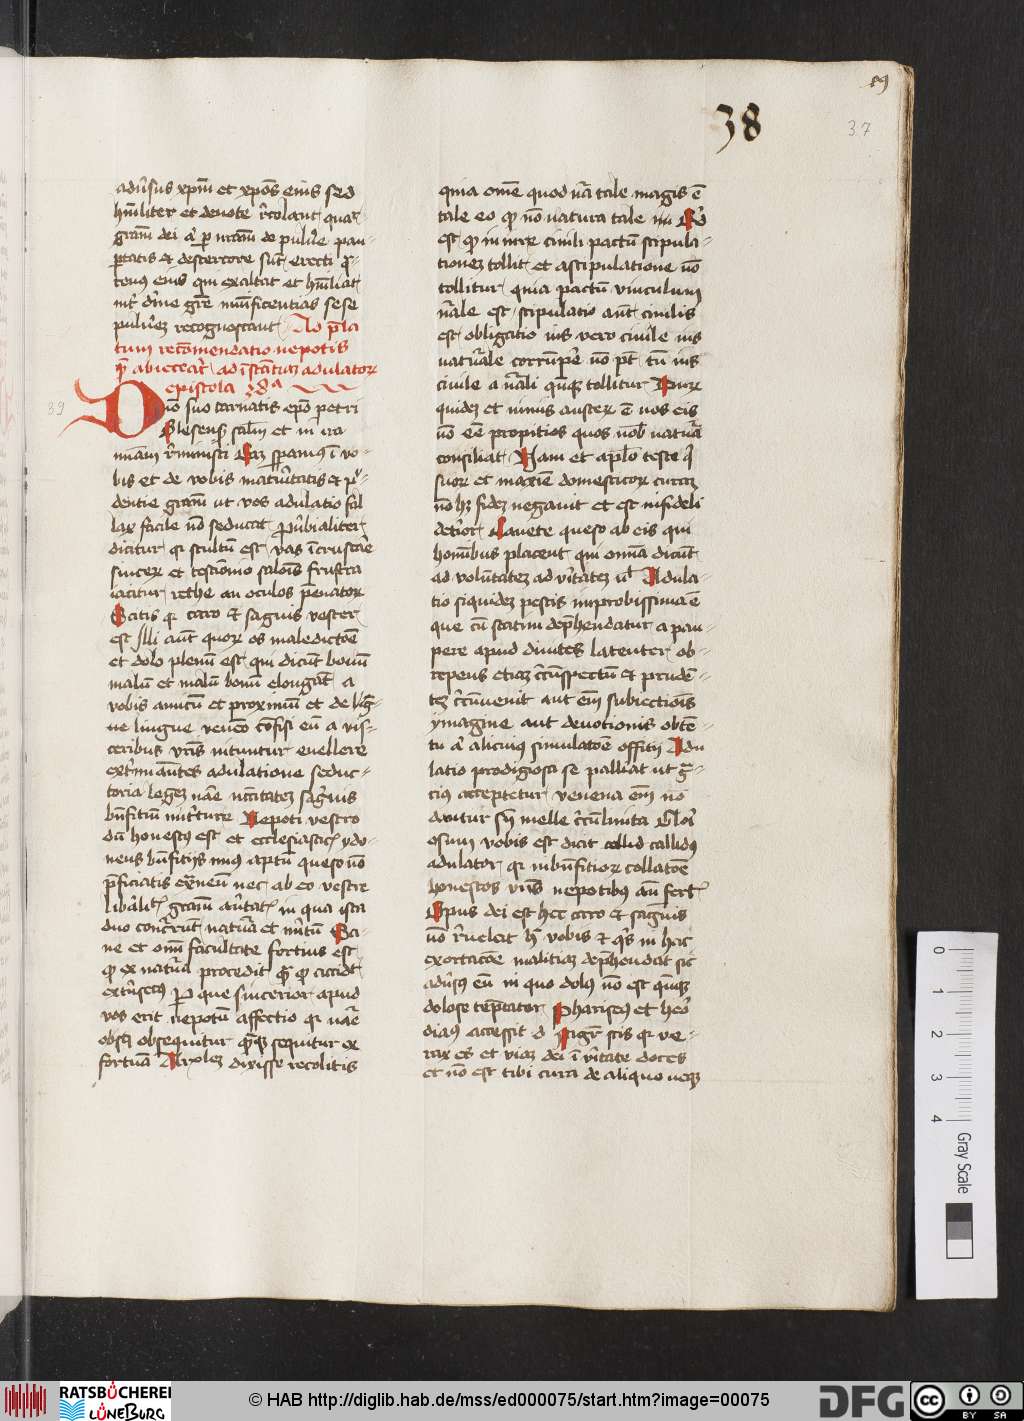 38
37
adu͛sus xp̄m et xpōs eius sed
hūiliter et deuote r͛colant quat͛
gram̄ dei a͛ p nr̄am̄ de pulu͛e pau-
ptatis et destercore sūt erecti
tenꝰ eius qui exaltat et hūiliat
munificentias sese
pulu͛ez recognoscant Ad p̄la
tum recōmendatio nepotis
abiecerat ad īstātiaz adulatoꝝ
epistola
39
Dno suo carnatis epō petri
Blesenẜ salm̄ et in ira
miam̄ r͛minisci Caꝫ spamꝰ ī vo-
bis et de vobis maturitatis et p͛-
dentie gram̄ ut vos adulatio fal
lax facile nō seducat ꝓu͛bialiter
dicitur ꝙ stultū est vas īcrustare
sinceꝝ et testīonio salōis frustra
iacitur rethe an oculos pēnatoꝝ
Scitis ꝙ caro et saguis vester
est Illi aūt quoꝝ os maledictōe
et dolo plenū est qui dicūt bonū
malū et malū bonū elongāt a
vobis amicū et proximū et de
ne lingue veneo cōfisi eū a vis-
ceribus vr̄is nituntur euellere
ext͛miantes adulatione seduc-
toria legez nāe
bn̄fitiū Nepoti vestro
dū honestꝰ est et ecclesiastic͛ ydo-
neus bn̄fitijs miꝰ aptū queso nō
p̄ficiatis ext͛neū nec ab eo vestre
lib͛alit͛ gram̄ au͛tat͛ in qua ista
duo concr͛rūt natura et m͛itū Sa-
ne et omī facultate fortius est
ꝙ ex natura procedit ꝙ accidt͛
ext͛secꝰ ꝑque sincerior apud
vos erit nepotū affectio ꝙ nāe
obseq̄ obsequitur sequitur ex
fortuna Arꝰlez dixisse recolitis
quia omē quod nr̄a tale magis ē
tale eo ꝙ nō natura tale
est ꝙ in iure ciuili pactū stipula-
tionez tollit et astipulatione nō
tollitur quia pactū vinculum
nr̄ale est stipulatio aūt ciuilis
est obligatio ius vero ciuile ius
naturale corrūpe͛ nō pt͛ tn̄ ius
ciuile a nr̄ali tollitur Duꝝ
quidez et nimis austeꝝ ē nos eis
nō eē propitios quos nob͛ natura
consiliat Nam et aplō teste
suoꝝ et maxīe domesticoꝝ curaꝫ
nō hꝫ fidez negauit et est infideli
det͛ior Cauete queso ab eis qui
hominibus placent qui omīa dicūt
ad volūtatez ad u͛itatez Adula-
tio siquidez pestis improbissima ē
que cū statim dephendatur a pau-
pere apud diuites latenter ob-
repens etiaz cīrcūspectū et prudē-
tez cīrcūuenit aut em̄ subiectiōis
ymagine aut deuotionis obtē-
tu a͛ alicuius simulatōe offitij Adu
latio prodigiosa se palliat ut gr̄a-
cius acceptetur venena em̄ nō
dantur melle cīrcūlinita
osum vobis est dicit collid callidꝰ
adulator ꝙ inbn̄fitioꝝ collatōe
honestos vr̄is nepotibꝰ
Opus dei est hec caro et saguis
nō r͛uelat h͛ vobis et qs͛ in hac
exortacōe malitiaz dephendat sic
adu͛sꝰ eū in quo dolꝰ nō est
dolose tēptator Phariseꝰ et hero͛
dianꝰ accessit d Magr͛ scis ꝙ ve-
rax es et viaz dei ī u͛itate doces
et nō est tibi cura de aliquo neqꝫ
0
1
2
3
4
Gray Scale
RATSBÜCHEREI LÜNEBURG
© HAB http://diglib.hab.de/mss/ed000075/start.htm?image=00075
DFG
cc BY SA